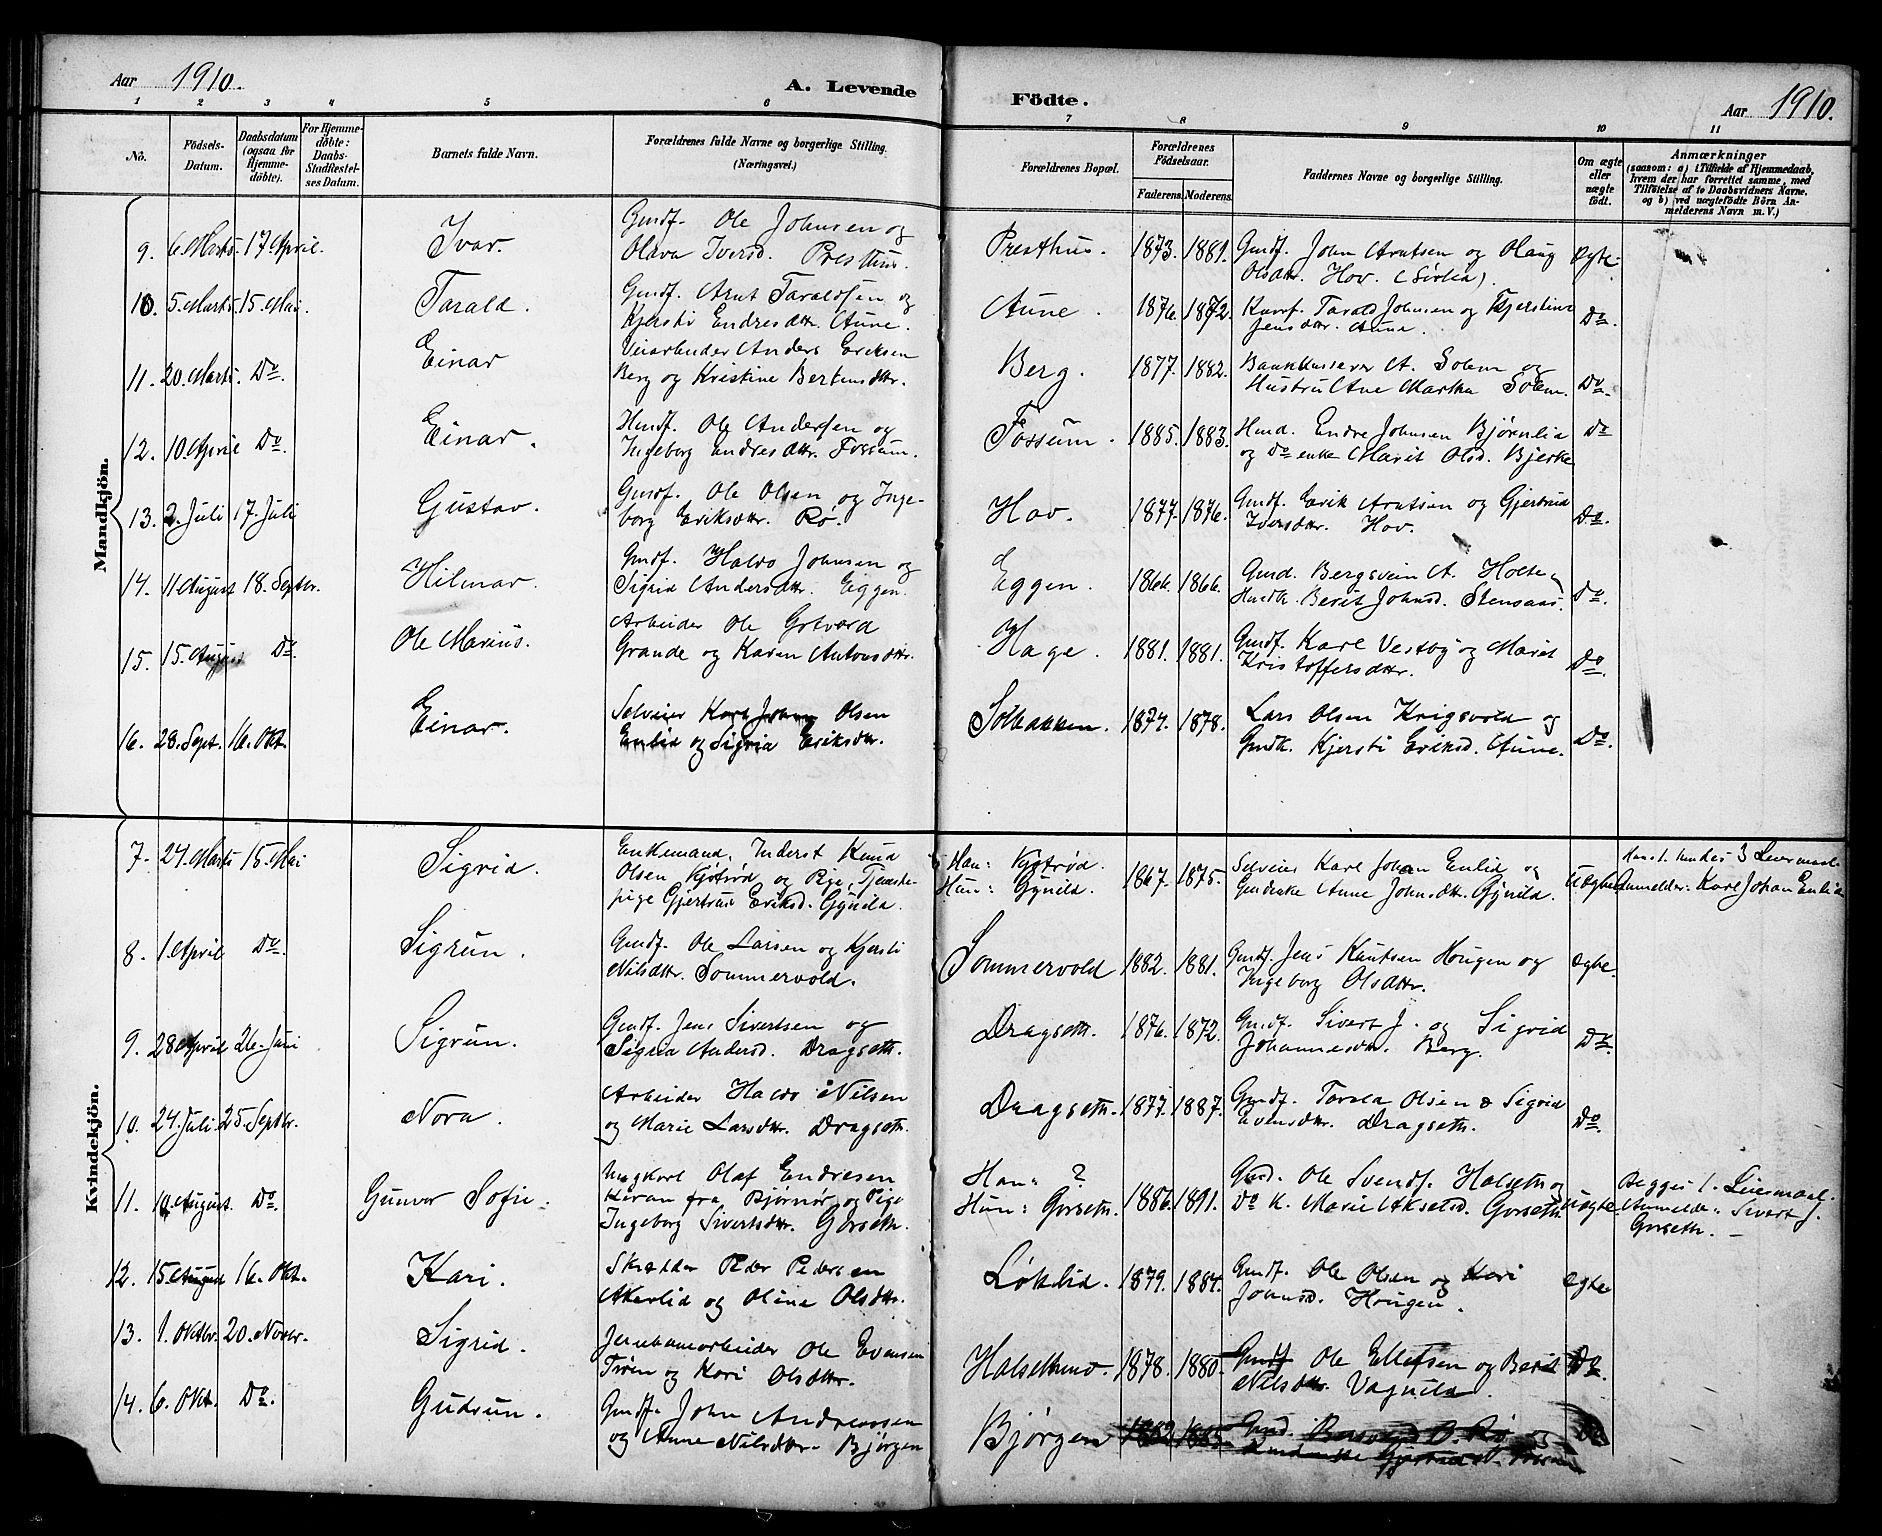 Aar 1910. A. Levende Födte. Aar 1910.
1 2 3 4 5 6 7 8 9 10 11
No. Födsels-Datum. Daabsdatum (ogsaa for Hjemmedöbte). For Hjemmedöbte: Daabs-Stadfæstelses Datum. Barnets fulde Navn. Forældrenes fulde Navne og borgerlige Stilling. (Næringsvei.) Forældrenes Bopæl. Forældrenes Födselsaar. Faderens. Moderens. Faddernes Navne og borgerlige Stilling. Om ægte eller uægte födt. Anmærkninger (saasom: a) i Tilfælde af Hjemmedaab, hvem der har forrettet samme, med Tilföielse af to Daabsvidners Navne, og b) ved uægtefödte Börn Anmelderens Navn m. V.)
Mandkjön.
9. 6. Marts. 17 April. Ivar. Gmdf. Ole Johnsen og Presthus. 1873. 1881. Gmdf. John Arntsen og Olaug Ægte.
Olava Iversd. Presthus. Olsdtr. Hov.
10. 5. Marts. 15. Mai. Tarald. Gmdf. Arnt Taraldsen og Aune. 1876. 1872. Tarald Johnsen og Kjerstine Do.
Kjersti Endresdtr. Aune. Jensdtr. Aune.
11. 20. Marts. Do. Einar Veiarbeider Anders Eriksen Berg. 1877. 1882. A. Solem og Do.
Berg og Kristine Berntsdtr. Hustru Ane Martha Solem.
12. 10. April Do. Einar. Husmf. Ole Andersen og Fossum. 1885. 1883. Endre Johnsen Bjørnlia Do
Ingeborg Endresdtr. Fossum. og Do enke Marit Olsd. Bjerke
13. 2. Juli 17. Juli Gustav. Gmdf. Ole Olsen og Inge- Hov. 1877. 1876. Gmdf. Erik Arntsen og Gjertrud Do.
borg Eriksdtr. Rø. Iversdtr. Hov.
14. 11 August 18. Septbr. Hilmar. Gmdf. Haldo Johnsen og Eggen. 1866. 1866. Gmd. Bergsvein A. Holte Do.
Sigrid Andersdtr. Eggen. Berit Johnsd. Stensaas.
15. 15. August Do. Ole Marius. Arbeider Ole Gotvard Hage. 1881. 1881. Gmdf. Karl Vestby og Marit Do.
Grande og Karen Antonsdtr. Kristoffersdtr.
16. 28. Sept. 16. Okt. Einar. Selveier Karl Johan Olsen Solbakken. 1874. 1878. Lars Olsen Krigsvold og Do.
Enlid og Sigrid Eriksdtr. Gmdk. Kjersti Eriksd. Aune.
Kvindekjön.
7. 24. Marts 15. Mai Sigrid. Enkemand, Inderst Knud Han: 1867. 1875. Selveier Karl Johan Enlid og Uægte 3 Leiermaal.
Olsen og Pige, Tjeneste- Hun: Gynild. Anne Johnsdtr. Gynild. Anmelder: Karl Johan Enlid
pige Gjertrud Eriksd. Gynild.
8. 1. April Do. Sigrun. Gmdf. Ole Larsen og Kjersti Sommervold 1882. 1881. Gmdf. Jens Knutsen Hougen og Ægte.
Nilsdtr. Sommervold. Ingeborg Olsdtr.
9. 28 April 26. Juni Sigrun. Gmdf. Jens Sivertsen og Dragseth. 1876. 1872. Gmdf. Sivert J. og Sigrid Do.
Sigrid Andersd. Dragseth. Johannesdtr. Berg.
10. 24. Juli. 25. Septbr. Nora. Arbeider Haldo Nilsen Dragseth. 1877. 1887. Gmdf. Tarald Olsen & Sigrid Do.
og Marie Larsdtr. Dragseth. Evensdtr. Dragseth.
11. August. Do. Gunvor Sofie. Ungkarl Olaf Endresen Han: ? 1886. 1891. Gmd. Ole Svends. Halseth og Uægte. Begges 1. Leiermaal.
fra Bjørnør og Pige Hun: Gorseth. Do K. Marie Akselsd. Gorseth Anmelder: Sivert J.
Ingeborg Sivertsdtr. Gorseth. Gorseth.
12. 15 August 16. Okt. Kari. Skrædder Peder Pedersen Løklid. 1879. 1884. Gmdf. Ole Olsen og Kari Ægte
Akerlid og Oline Olsdtr. Johnsd. Hougen.
13. 1. Oktbr. 20. Novbr. Sigrid. Jernbanearbeider Ole Evensen Halsethmo 1878. 1880. Gmdf Ole Ellefsen og Berit Do.
Trøen og Kari Olsdtr. Nilsdtr. Vagnild.
14. 6. Okt. Do. Gudrun. Gmdf. John Andreassen Bjørgen 1882. 1885. Gmd. B. Rø og Do
og Anne Nilsdtr. Bjørgen